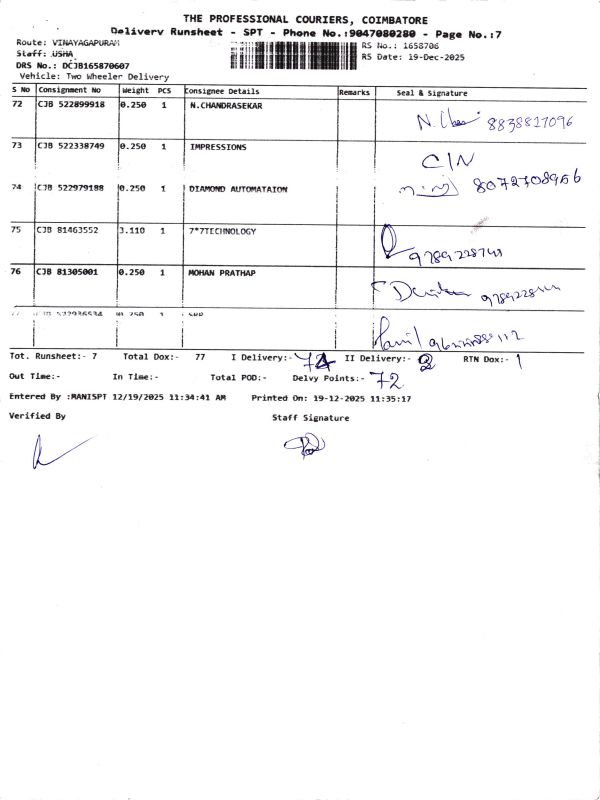 THE PROFESSIONAL COURIERS, COIMBATORE
Delivery Runsheet - SPT - Phone No.:9047080280 - Page No.:7
Route: VINAYAGAPURAM
RS No.: 1658706
Staff: USHA
RS Date: 19-Dec-2025
DRS No.: DCJB165870607
Vehicle: Two Wheeler Delivery
S No Consignment No Weight PCS Consignee Details Remarks Seal & Signature
72 CJB 522899918 0.250 1 N.CHANDRASEKAR
73 CJB 522338749 0.250 1 IMPRESSIONS C/N
74 CJB 522979188 0.250 1 DIAMOND AUTOMATAION 8072708956
75 CJB 81463552 3.110 1 7*7TECHNOLOGY
76 CJB 81305001 0.250 1 MOHAN PRATHAP
77 CJB 522936534 0.250 1
Tot. Runsheet:- 7 Total Dox:- 77 I Delivery:- II Delivery:- RTN Dox:- 1
Out Time:- In Time:- Total POD:- Delvy Points:- 72
Entered By :MANISPT 12/19/2025 11:34:41 AM Printed On: 19-12-2025 11:35:17
Verified By Staff Signature